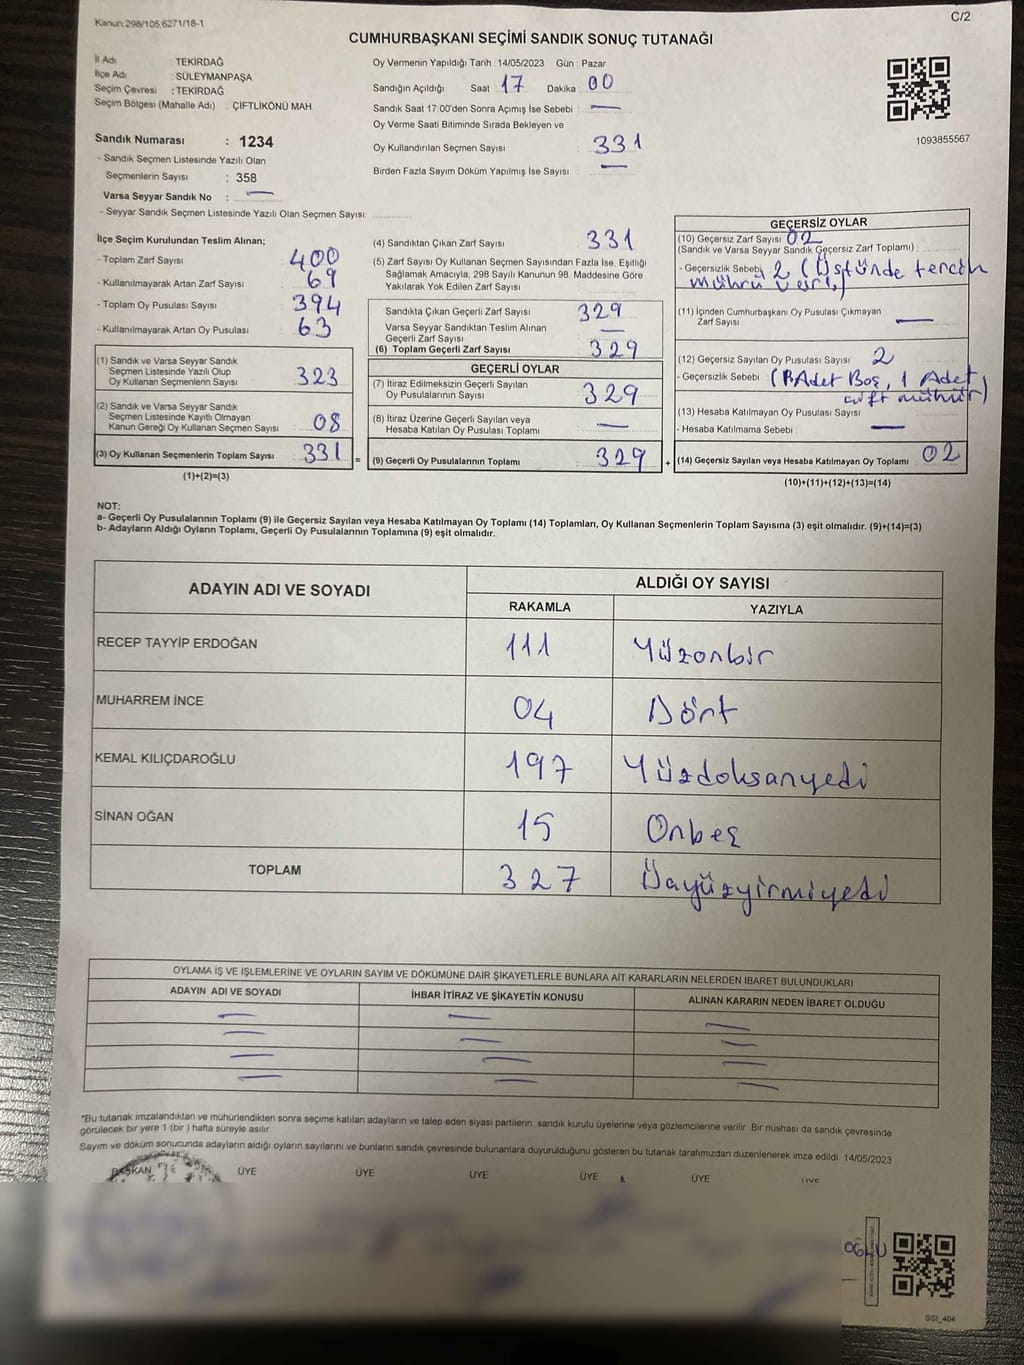 Kanun.298/105,6271/18-1
C/2
CUMHURBAŞKANI SEÇİMİ SANDIK SONUÇ TUTANAĞI
İl Adı : TEKİRDAĞ
İlçe Adı : SÜLEYMANPAŞA
Seçim Çevresi : TEKİRDAĞ
Seçim Bölgesi (Mahalle Adı) : ÇİFTLİKÖNÜ MAH
Sandık Numarası : 1234
- Sandık Seçmen Listesinde Yazılı Olan
Seçmenlerin Sayısı : 358
Varsa Seyyar Sandık No : —
- Seyyar Sandık Seçmen Listesinde Yazılı Olan Seçmen Sayısı:
Oy Vermenin Yapıldığı Tarih : 14/05/2023 Gün : Pazar
Sandığın Açıldığı Saat 17 Dakika 00
Sandık Saat 17:00'den Sonra Açımış İse Sebebi : —
Oy Verme Saati Bitiminde Sırada Bekleyen ve
Oy Kullandırılan Seçmen Sayısı : 331
Birden Fazla Sayım Döküm Yapılmış İse Sayısı : —
1093855567
İlçe Seçim Kurulundan Teslim Alınan;
- Toplam Zarf Sayısı : 400
- Kullanılmayarak Artan Zarf Sayısı : 69
- Toplam Oy Pusulası Sayısı : 394
- Kullanılmayarak Artan Oy Pusulası : 63
(1) Sandık ve Varsa Seyyar Sandık
Seçmen Listesinde Yazılı Olup
Oy Kullanan Seçmenlerin Sayısı : 323
(2) Sandık ve Varsa Seyyar Sandık
Seçmen Listesinde Kayıtlı Olmayan
Kanun Gereği Oy Kullanan Seçmen Sayısı : 08
(3) Oy Kullanan Seçmenlerin Toplam Sayısı : 331 =
(1)+(2)=(3)
(4) Sandıktan Çıkan Zarf Sayısı : 331
(5) Zarf Sayısı Oy Kullanan Seçmen Sayısından Fazla İse, Eşitliği
Sağlamak Amacıyla, 298 Sayılı Kanunun 98. Maddesine Göre
Yakılarak Yok Edilen Zarf Sayısı :
Sandıkta Çıkan Geçerli Zarf Sayısı : 329
Varsa Seyyar Sandıktan Teslim Alınan
Geçerli Zarf Sayısı : —
(6) Toplam Geçerli Zarf Sayısı : 329
GEÇERLİ OYLAR
(7) İtiraz Edilmeksizin Geçerli Sayılan
Oy Pusulalarının Sayısı : 329
(8) İtiraz Üzerine Geçerli Sayılan veya
Hesaba Katılan Oy Pusulası Toplamı : —
(9) Geçerli Oy Pusulalarının Toplamı : 329 +
GEÇERSİZ OYLAR
(10) Geçersiz Zarf Sayısı 02
(Sandık ve Varsa Seyyar Sandık Geçersiz Zarf Toplamı) :
- Geçersizlik Sebebi 2 (Üstünde tercih
mührü
(11) İçinden Cumhurbaşkanı Oy Pusulası Çıkmayan
Zarf Sayısı : —
(12) Geçersiz Sayılan Oy Pusulası Sayısı : 2
- Geçersizlik Sebebi Adet Boş, 1 Adet
çift mühür)
(13) Hesaba Katılmayan Oy Pusulası Sayısı :
- Hesaba Katılmama Sebebi : —
(14) Geçersiz Sayılan veya Hesaba Katılmayan Oy Toplamı : 02
(10)+(11)+(12)+(13)=(14)
NOT:
a- Geçerli Oy Pusulalarının Toplamı (9) ile Geçersiz Sayılan veya Hesaba Katılmayan Oy Toplamı (14) Toplamları, Oy Kullanan Seçmenlerin Toplam Sayısına (3) eşit olmalıdır. (9)+(14)=(3)
b- Adayların Aldığı Oyların Toplamı, Geçerli Oy Pusulalarının Toplamına (9) eşit olmalıdır.
ADAYIN ADI VE SOYADI
ALDIĞI OY SAYISI
RAKAMLA YAZIYLA
RECEP TAYYİP ERDOĞAN 111 Yüzonbir
MUHARREM İNCE 04 Dört
KEMAL KILIÇDAROĞLU 197 Yüzdoksanyedi
SİNAN OĞAN 15 Onbeş
TOPLAM 327 Üçyüzyirmiyedi
OYLAMA İŞ VE İŞLEMLERİNE VE OYLARIN SAYIM VE DÖKÜMÜNE DAİR ŞİKAYETLERLE BUNLARA AİT KARARLARIN NELERDEN İBARET BULUNDUKLARI
ADAYIN ADI VE SOYADI İHBAR İTİRAZ VE ŞİKAYETİN KONUSU ALINAN KARARIN NEDEN İBARET OLDUĞU
— — —
— — —
— — —
— — —
*Bu tutanak imzalandıktan ve mühürlendikten sonra seçime katılan adayların ve talep eden siyasi partilerin sandık kurulu üyelerine veya gözlemcilerine verilir. Bir nushası da sandık çevresinde
görülecek bir yere 1 (bir) hafta süreyle asılır.
Sayım ve döküm sonucunda adayların aldığı oyların sayılarını ve bunların sandık çevresinde bulunanlara duyurulduğunu gösteren bu tutanak tarafımızdan düzenlenerek imza edildi. 14/05/2023
BAŞKAN ÜYE ÜYE ÜYE ÜYE ÜYE ÜYE
SSI_404